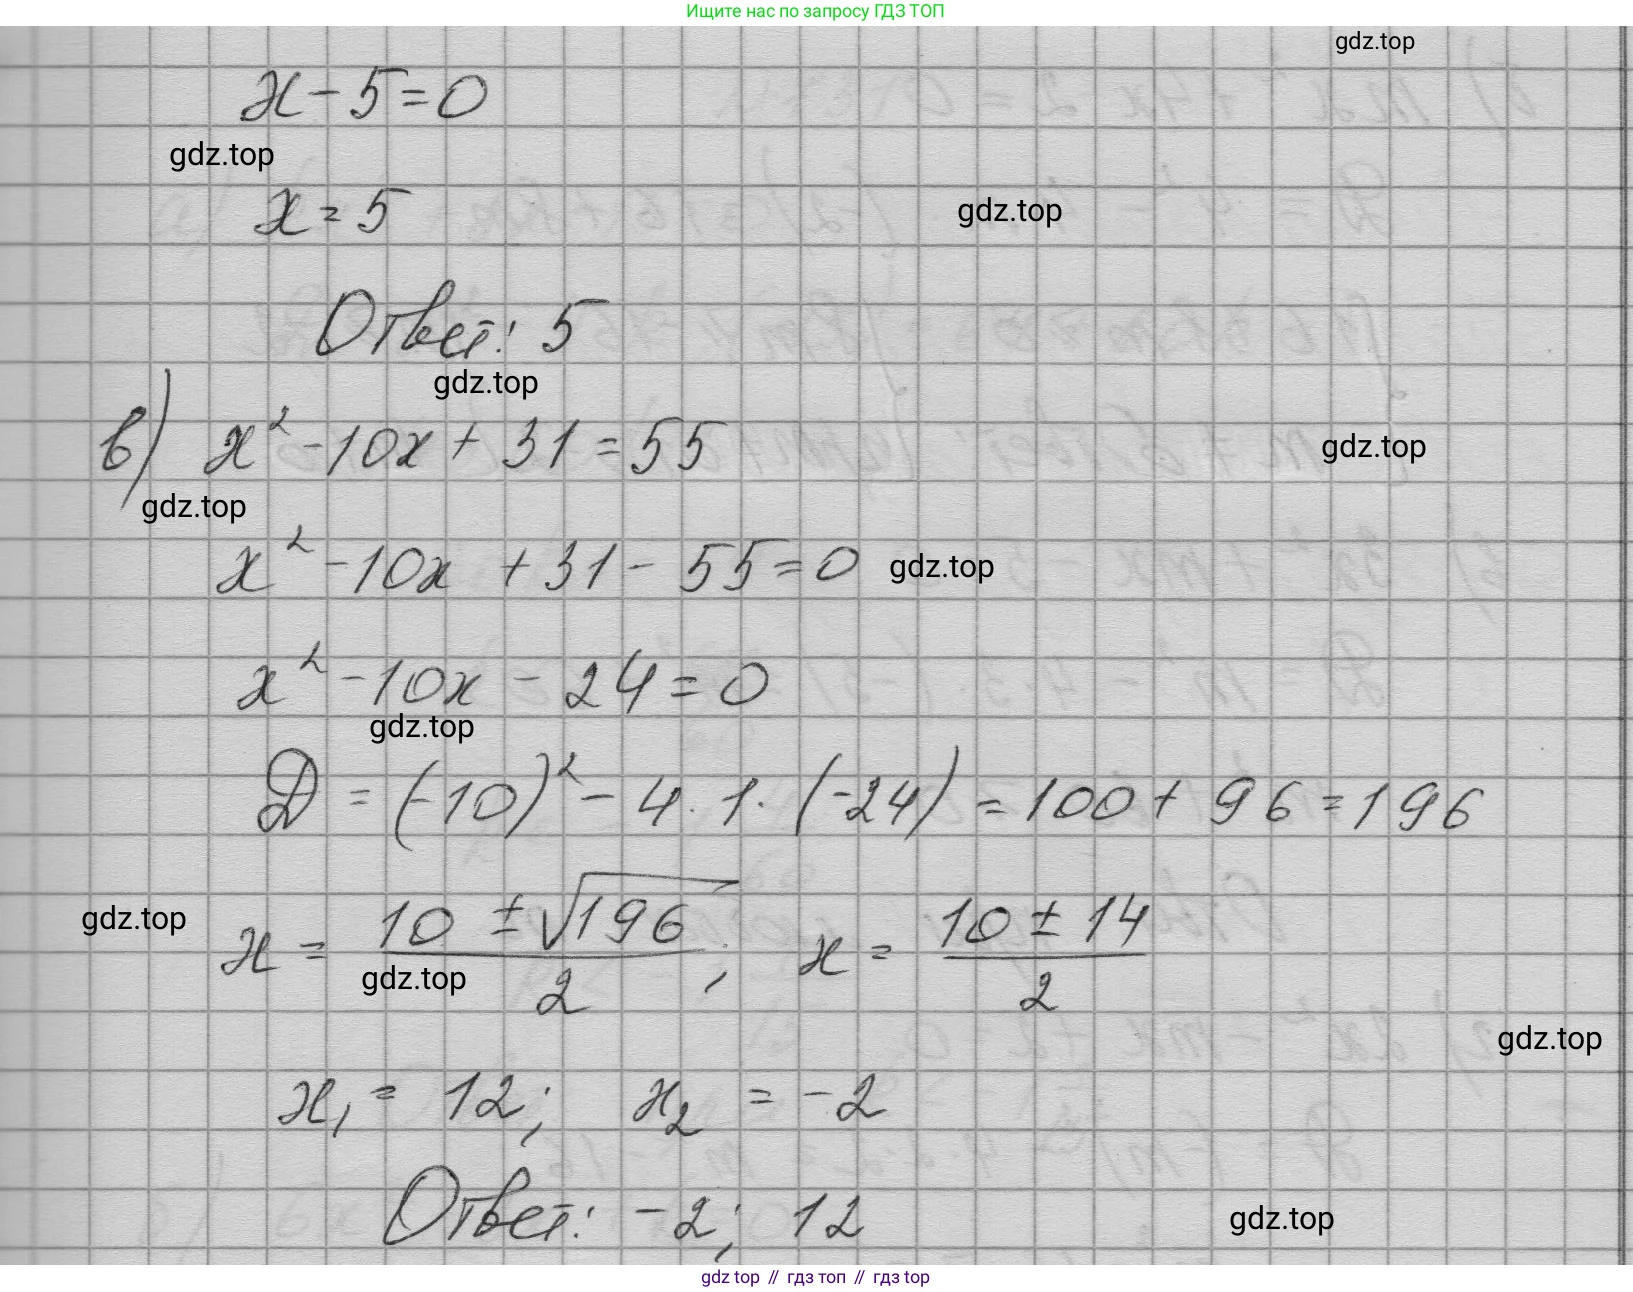 Ищите нас по запросу ГДЗ ТОП
gdz.top
x - 5 = 0
gdz.top
x = 5
gdz.top
Ответ: 5
gdz.top
в) x² - 10x + 31 = 55
gdz.top
gdz.top
x² - 10x + 31 - 55 = 0
gdz.top
x² - 10x - 24 = 0
gdz.top
D = (-10)² - 4 · 1 · (-24) = 100 + 96 = 196
gdz.top
x = (10 ± √196)/2; x = (10 ± 14)/2
gdz.top
gdz.top
x₁ = 12; x₂ = -2
Ответ: -2; 12
gdz.top
gdz top // гдз топ // гдз top